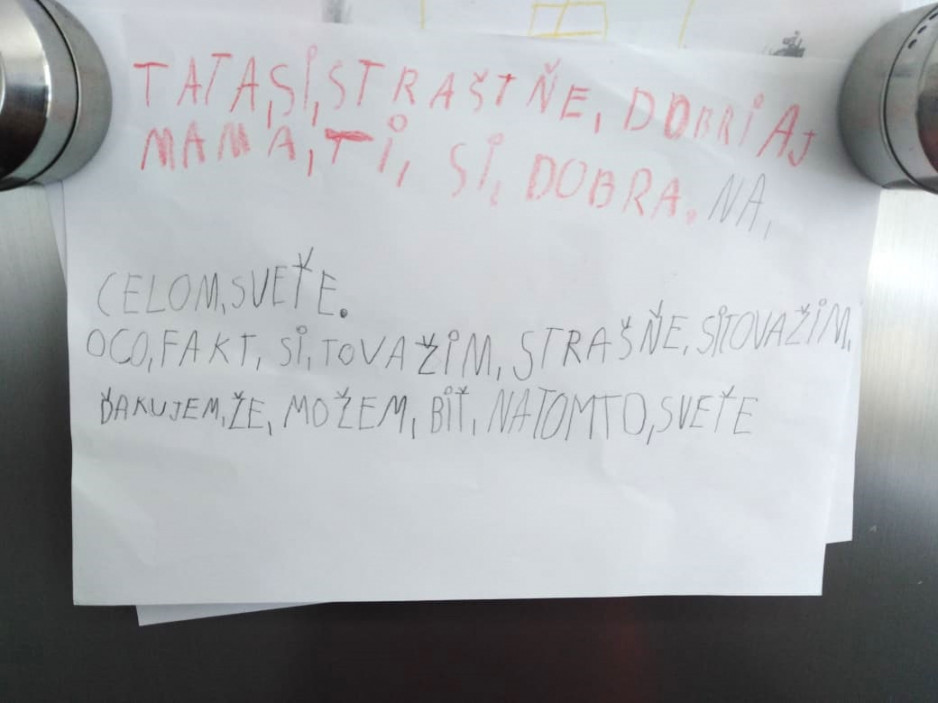 TATA,SI,STRAŠTŇE, DOBRI AJ
MAMA, TI, SI, DOBRA. NA,
CELOM,SVEŤE.
OCO,FAKT, SI,TOVAŽIM, STRAŠŇE, SITOVAŽIM,
ĎAKUJEM,ŽE, MOŽEM, BIŤ, NATOMTO,SVEŤE